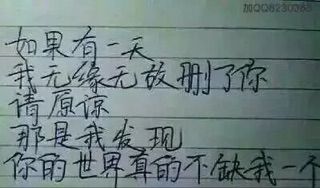 加QQ8230265
如果有一天
我无缘无故删了你
请原谅
那是我发现
你的世界真的不缺我一个